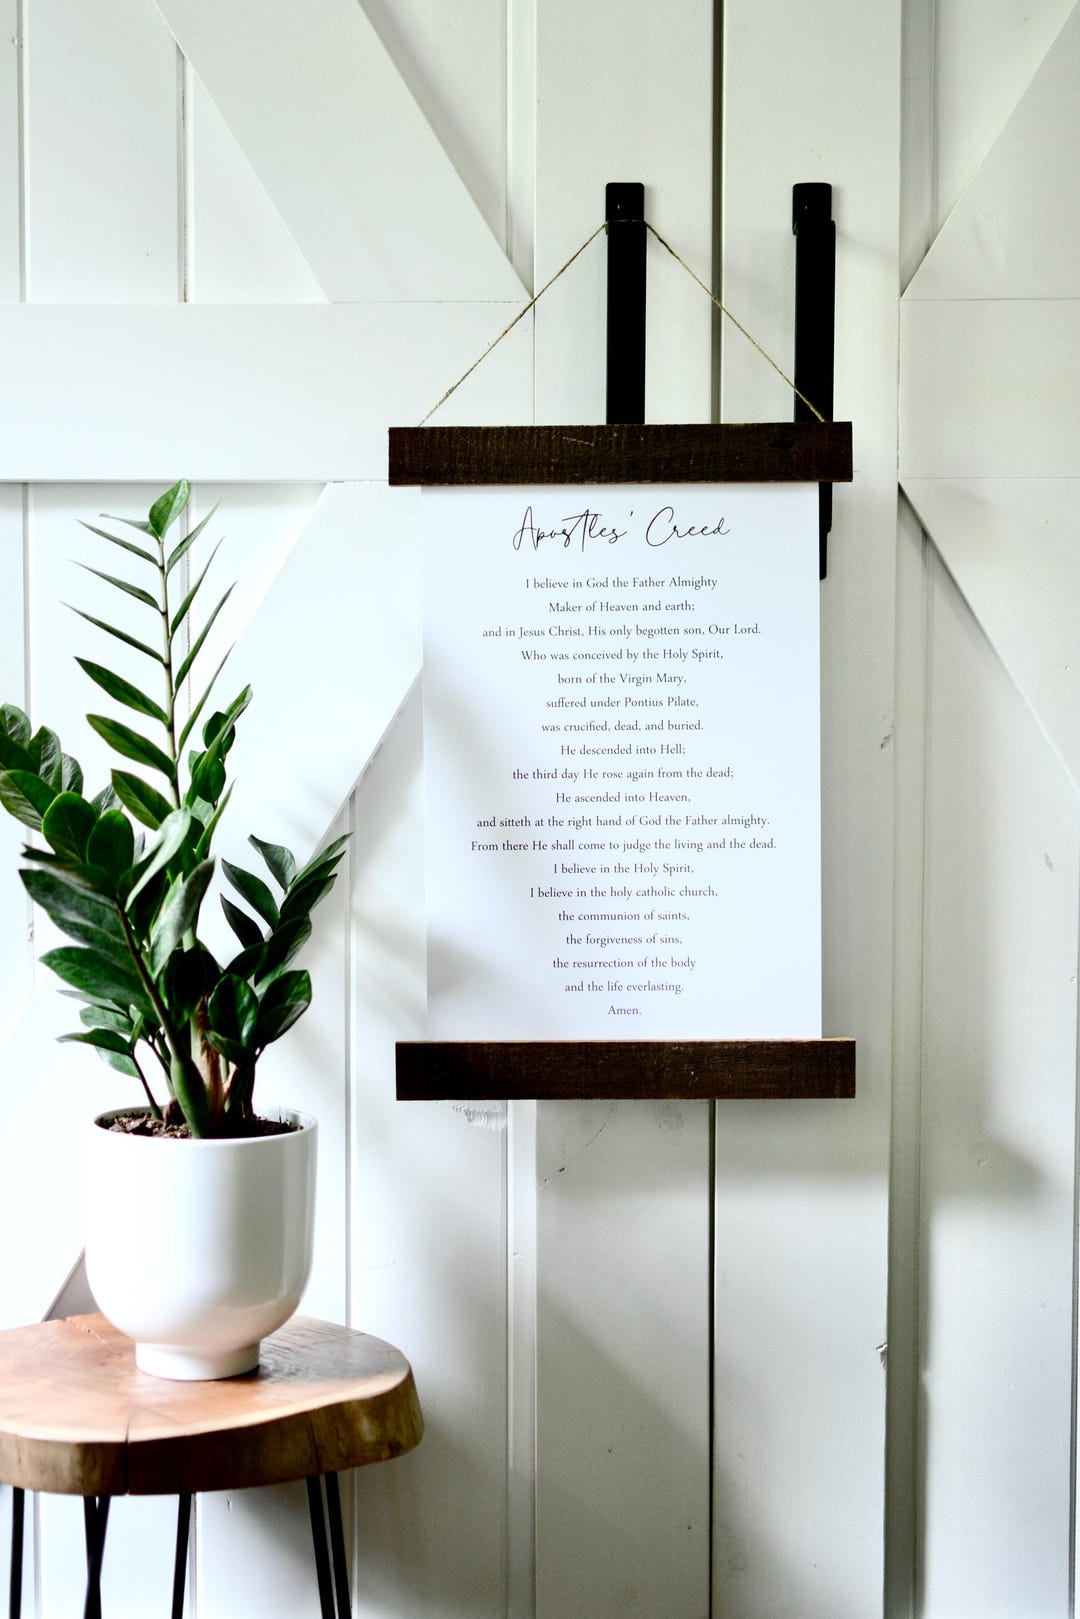 Apostles' Creed
I believe in God the Father Almighty
Maker of Heaven and earth;
and in Jesus Christ, His only begotten son, Our Lord.
Who was conceived by the Holy Spirit,
born of the Virgin Mary,
suffered under Pontius Pilate,
was crucified, dead, and buried.
He descended into Hell;
the third day He rose again from the dead;
He ascended into Heaven,
and sitteth at the right hand of God the Father almighty.
From there He shall come to judge the living and the dead.
I believe in the Holy Spirit,
I believe in the holy catholic church,
the communion of saints,
the forgiveness of sins,
the resurrection of the body
and the life everlasting.
Amen.